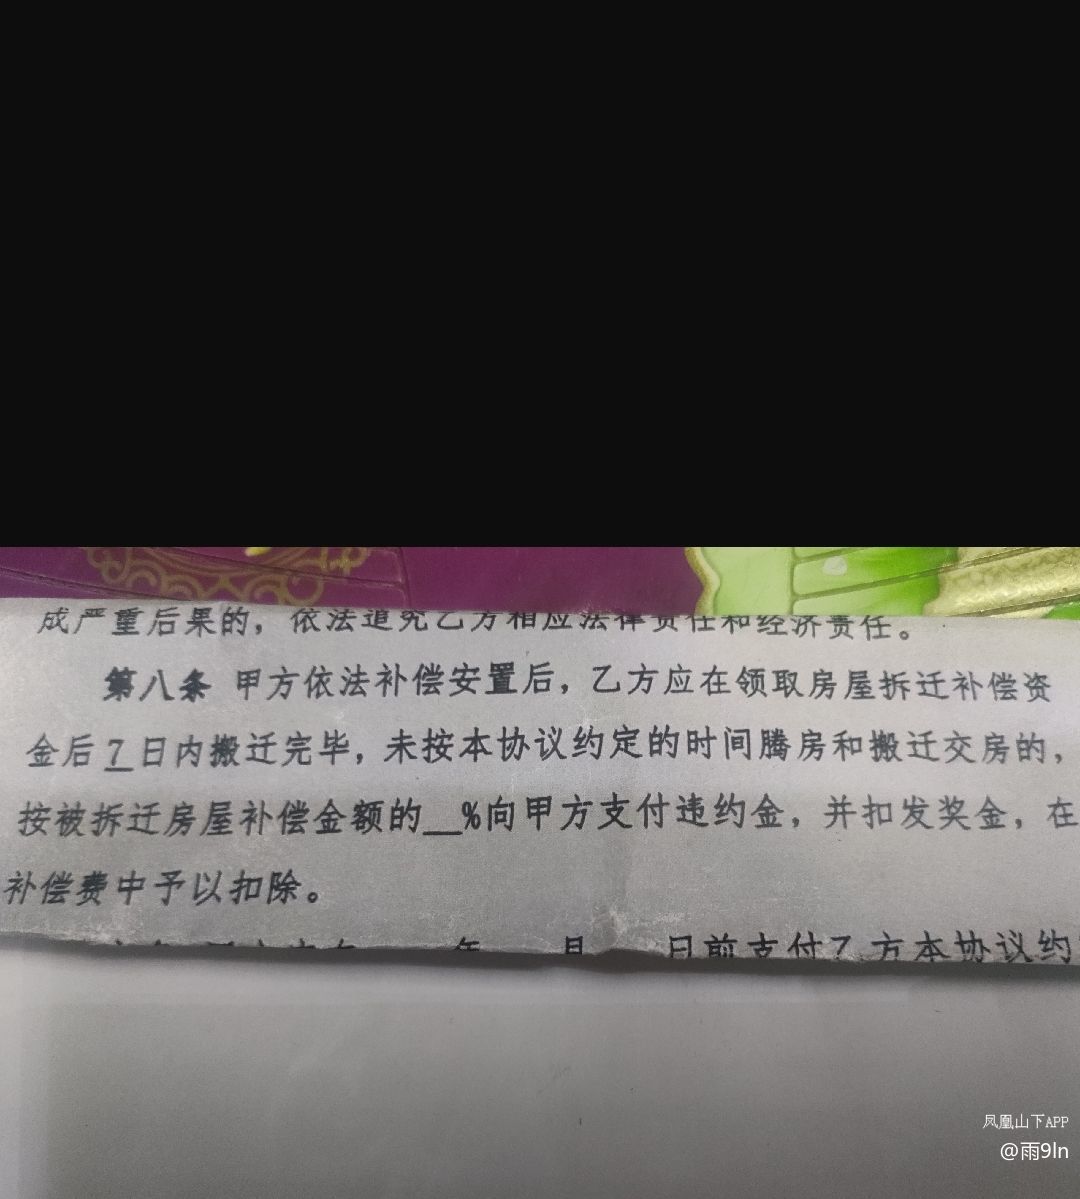 成严重后果的，依法追究乙方相应法律责任和经济责任。
第八条 甲方依法补偿安置后，乙方应在领取房屋拆迁补偿资
金后7日内搬迁完毕，未按本协议约定的时间腾房和搬迁交房的，
按被拆迁房屋补偿金额的__%向甲方支付违约金，并扣发奖金，在
补偿费中予以扣除。
年 月 日前支付乙方本协议约
凤凰山下APP
@雨9ln